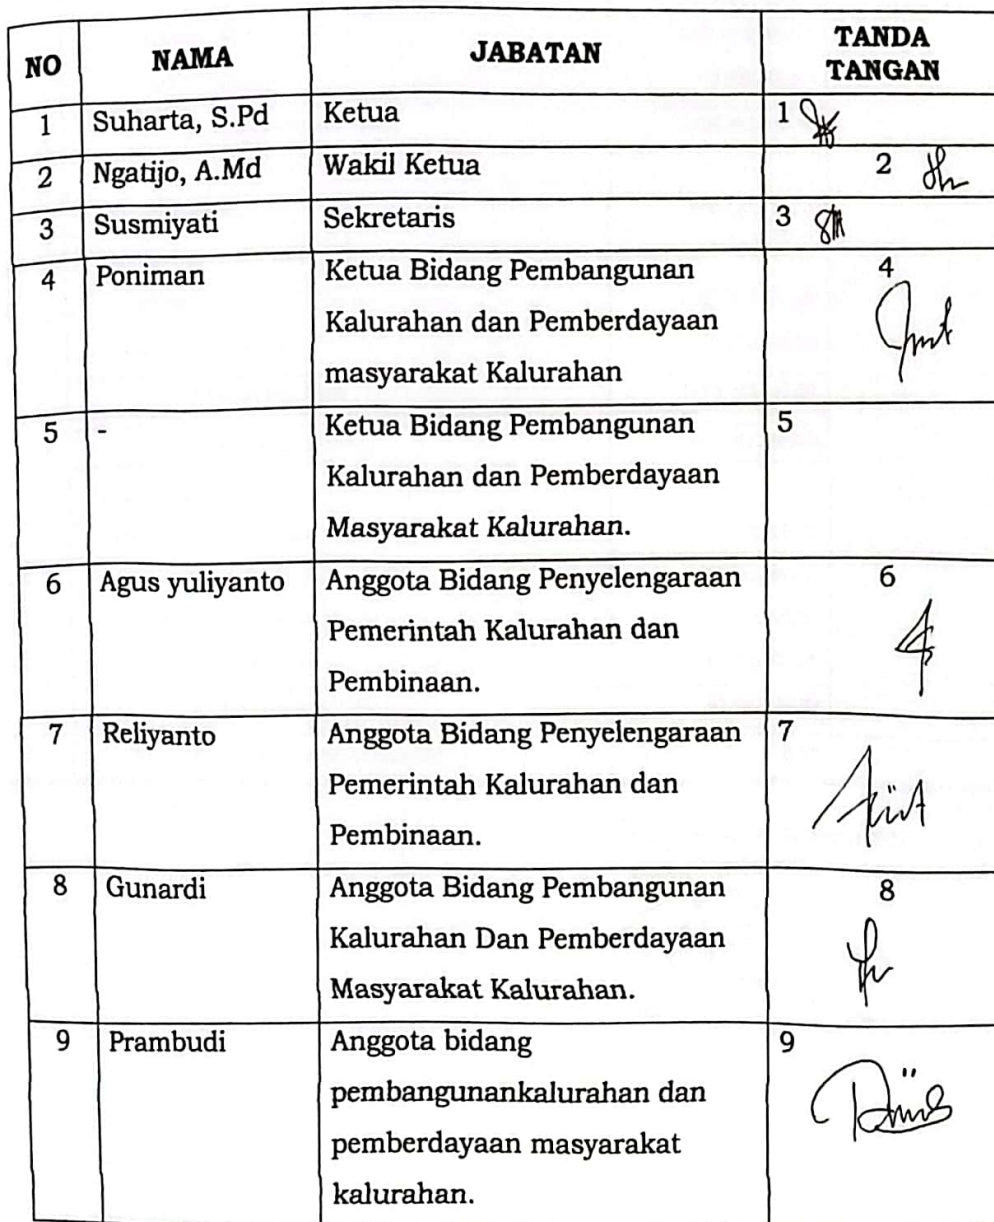 NO NAMA JABATAN TANDA TANGAN
1 Suharta, S.Pd Ketua 1
2 Ngatijo, A.Md Wakil Ketua 2
3 Susmiyati Sekretaris 3
4 Poniman Ketua Bidang Pembangunan 4
Kalurahan dan Pemberdayaan
masyarakat Kalurahan
5 - Ketua Bidang Pembangunan 5
Kalurahan dan Pemberdayaan
Masyarakat Kalurahan.
6 Agus yuliyanto Anggota Bidang Penyelengaraan 6
Pemerintah Kalurahan dan
Pembinaan.
7 Reliyanto Anggota Bidang Penyelengaraan 7
Pemerintah Kalurahan dan
Pembinaan.
8 Gunardi Anggota Bidang Pembangunan 8
Kalurahan Dan Pemberdayaan
Masyarakat Kalurahan.
9 Prambudi Anggota bidang 9
pembangunankalurahan dan
pemberdayaan masyarakat
kalurahan.